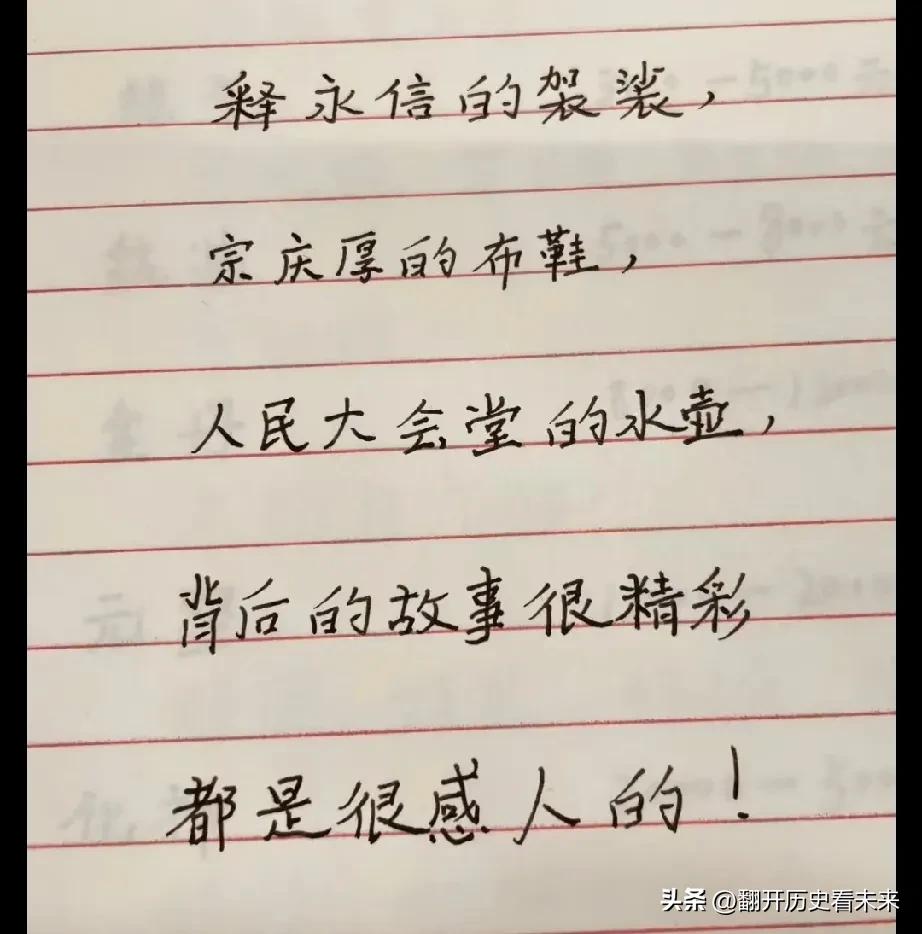 释永信的袈裟，
宗庆厚的布鞋，
人民大会堂的水壶，
背后的故事很精彩
都是很感人的！
头条 @翻开历史看未来